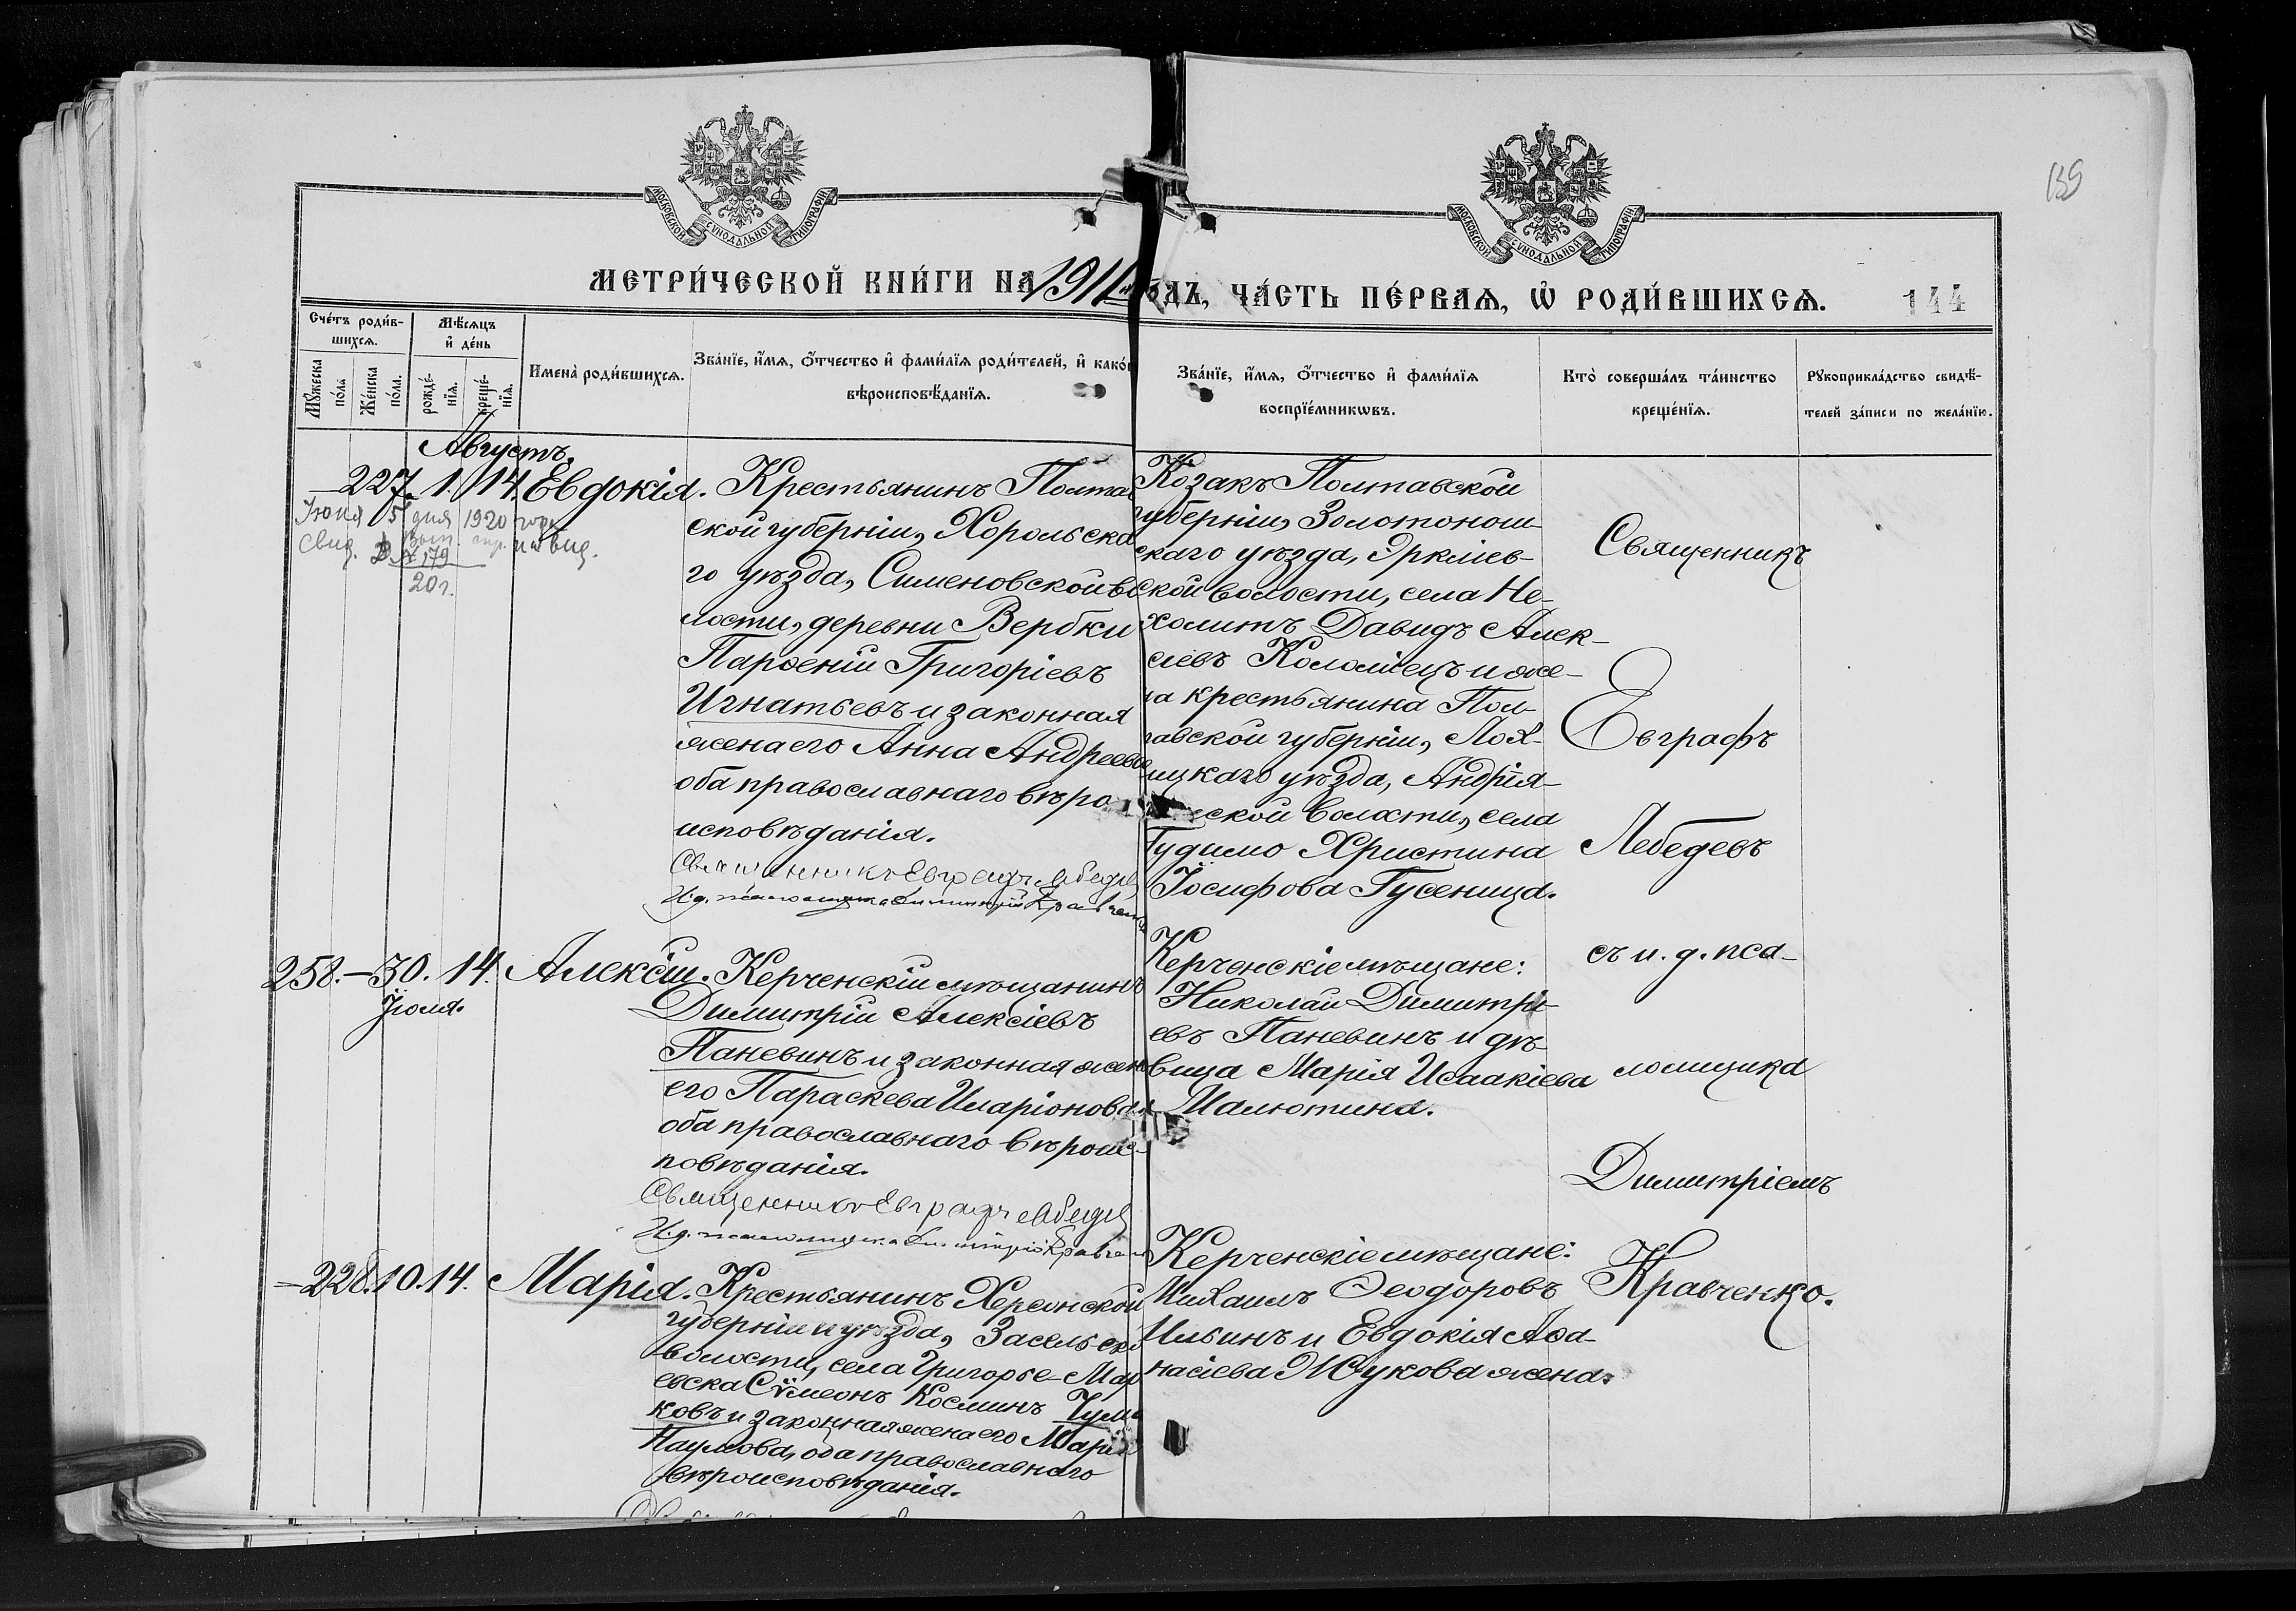 139
МОСКОВСКОЙ СѴНОДАЛЬНОЙ ТИПОГРАФІИ
МОСКОВСКОЙ СѴНОДАЛЬНОЙ ТИПОГРАФІИ
МЕТРИ́ЧЕСКОЙ КНИ́ГИ НА 1911
о́дъ, ЧА́СТЬ ПЕ́РВАѦ, Ѡ҆ РОДИ́ВШИХСѦ.
144
Сче́тъ роди́в-
шихсѧ.
Мꙋ́жеска
по́ла
Же́нска
по́ла.
Мѣ́сѧцъ
и҆ де́нь
рожде́-
нїѧ.
креще́-
нїѧ.
И҆мена̀ роди́вшихсѧ.
Зва́нїе, и҆́мѧ, ѻ҆́тчество и҆ фами́лїѧ роди́телей, и҆ како́г
вѣроисповѣ́данїѧ.
Зва́нїе, и҆́мѧ, ѻ҆́тчество и҆ фами́лїѧ
воспрїе́мникѡвъ.
Кто̀ соверша́лъ та́инство
креще́нїѧ.
Рꙋкоприкла́дство свидѣ́-
телей за́писи по жела́нїю.
Августъ.
227. 1. 14. Евдокія.
Іюня 5 дня 1920 года
свид.
№ 179
20 г.
Крестьянинъ Полтав
ской губерніи, Хорольска
го уѣзда, Сименовской во
лости, деревни Вербки
Парѳеній Григоріевъ
Игнатьевъ и законная
жена его Анна Андреева
оба православнаго вѣро
исповѣданія.
Священникъ Евграфъ Лебедев
И.д. псаломщика Димитрій Кравченко
Козакъ Полтавской
губерніи, Золотонош-
скаго уѣзда, Ирклiев-
ской волости, села Не-
холитъ Давидъ Алек-
сіевъ Коломіецъ и же-
на крестьянина Пол-
тавской губерніи, Лох-
ицкаго уѣзда, Андрія-
ской волости, села
Гудимо Христина
Іосифова Гусеница.
Священникъ
Евграфъ
Лебедевъ
съ и. д. пса-
ломщика
Димитріемъ
Кравченко.
258. – 30. 14. Алексій.
Іюля.
Керченскій мѣщанинъ
Димитрій Алексіевъ
Паневинъ и законная жен
его Параскева Иларіонова
оба православнаго вѣроис-
повѣданія.
Священникъ Евграфъ Лебедев
И.д. псаломщика Димитрій Кравчен
Керченскіе мѣщане:
Николай Димитрі-
евъ Паневинъ и дѣ-
вица Марія Исаакіева
Малютина.
– 228. 10. 14. Марія.
Крестьянинъ Херсонской
губерніи и уѣзда, Засельско
волости, села Григорье-Мар
евска Сѵмеонъ Косминъ Чума
ковъ и законная жена его Марія
Наумова, оба православнаго
вѣроисповѣданія.
Керченскіе мѣщане:
Михаилъ Ѳеодоровъ
Ильинъ и Евдокія Аѳа-
насіева Жукова жена.